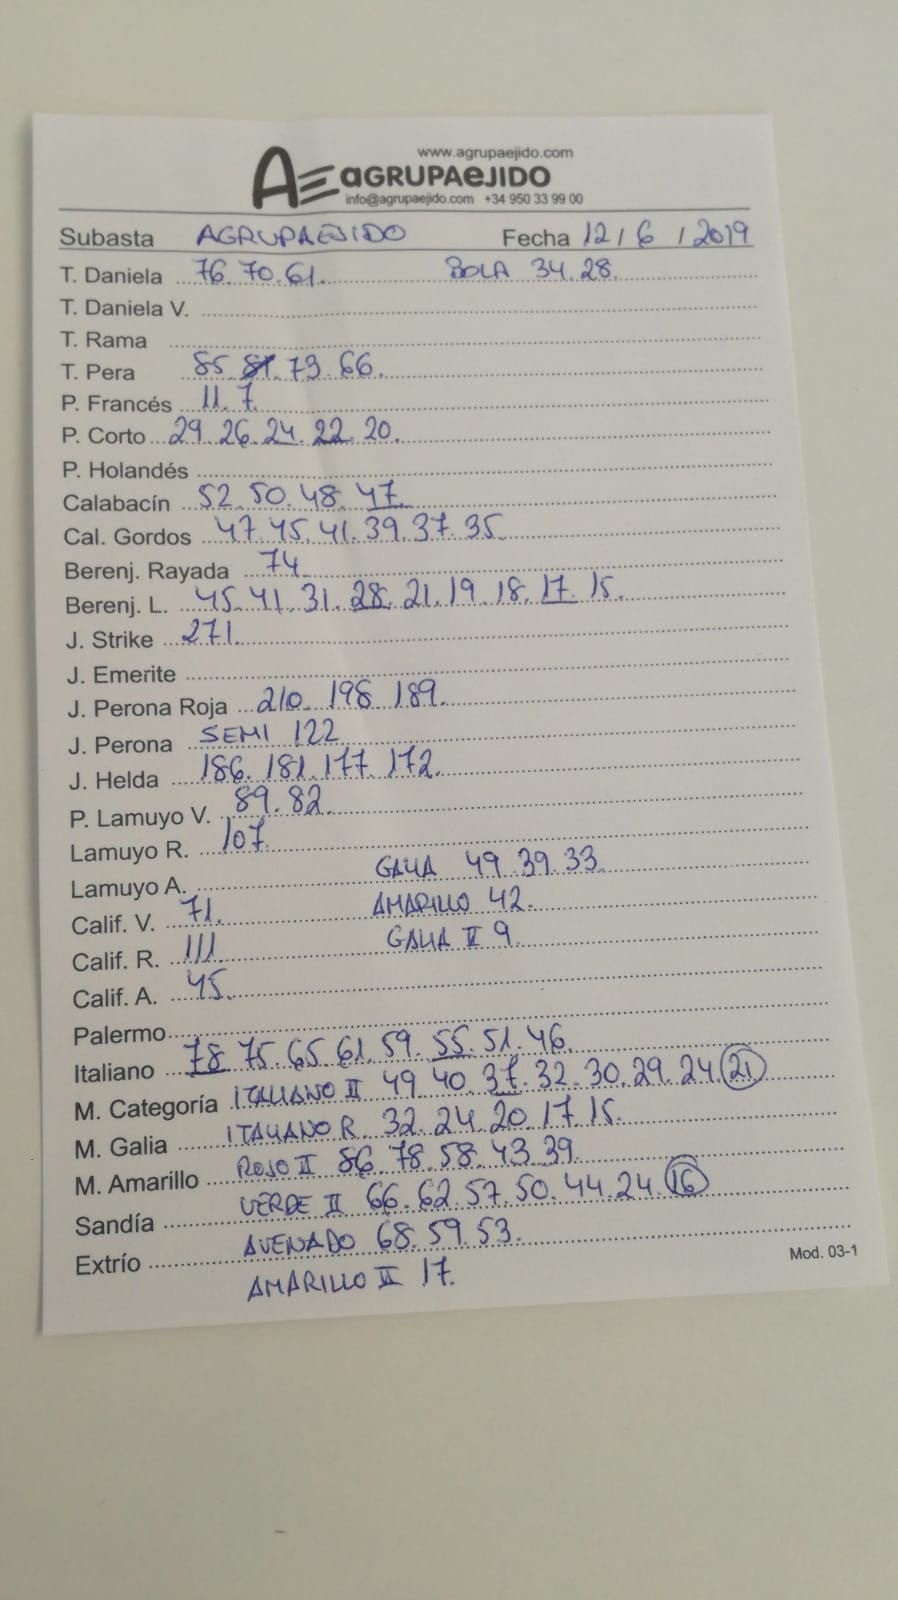 www.agrupaejido.com
AGRUPAEJIDO
info@agrupaejido.com +34 950 33 99 00
Subasta AGRUPAEJIDO Fecha 12/6/2019
T. Daniela 76. 70. 61. BOLA 34. 28.
T. Daniela V.
T. Rama
T. Pera 85 81. 73. 66.
P. Francés 11. 7.
P. Corto 29. 26. 24. 22. 20.
P. Holandés
Calabacín 52. 50. 48. 47.
Cal. Gordos 47. 45. 41. 39. 37. 35.
Berenj. Rayada 74
Berenj. L. 45. 41. 31. 28. 21. 19. 18. 17. 15.
J. Strike 271.
J. Emerite
J. Perona Roja 210. 198 189.
J. Perona SEMI 122
J. Helda 186. 181. 177. 172.
P. Lamuyo V. 89. 82.
Lamuyo R. 107.
Lamuyo A. GALIA 49. 39. 33.
Calif. V. 71. AMARILLO 42.
Calif. R. 111 GALIA II 9
Calif. A. 45.
Palermo
Italiano 78 75. 65. 61. 59. 55. 51. 46.
M. Categoría ITALIANO II 49 40. 37. 32. 30. 29. 24. 21
M. Galia ITALIANO R. 32. 24. 20. 17. 15.
M. Amarillo ROJO II 86. 78. 58. 43. 39.
Sandía VERDE II 66. 62. 57. 50. 44. 24. 16
Extrío AVENADO 68. 59. 53.
AMARILLO II 17.
Mod. 03-1